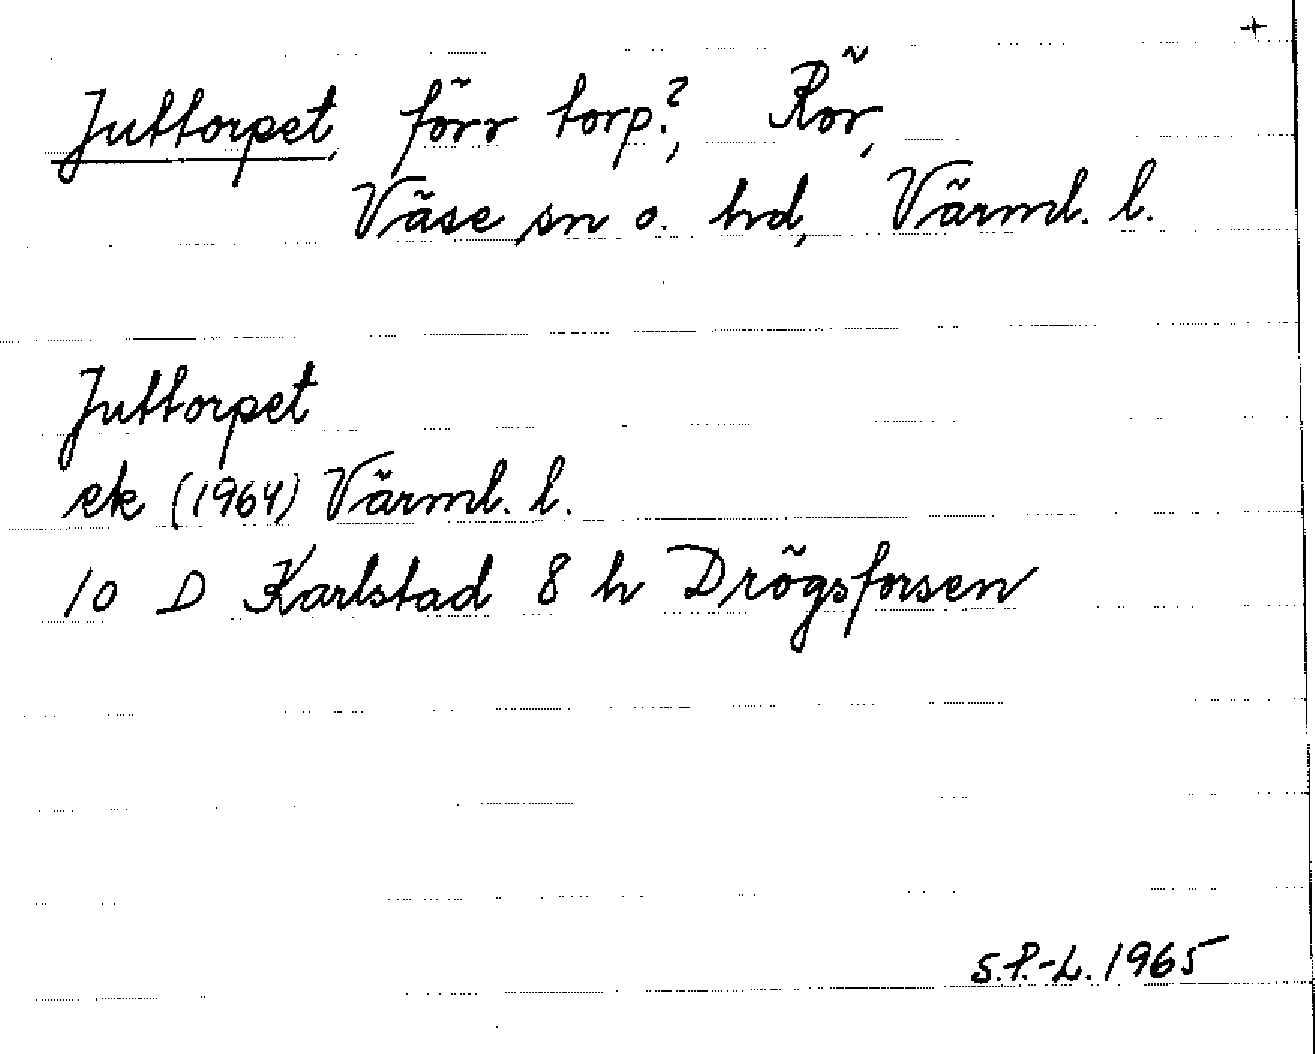 +
Juttorpet, förr torp?, Rör,
Väse sn o. hd, Värml. l.
Juttorpet
ek (1964) Värml. l.
10 D Karlstad 8 h Drögsforsen
S.P.-L. 1965